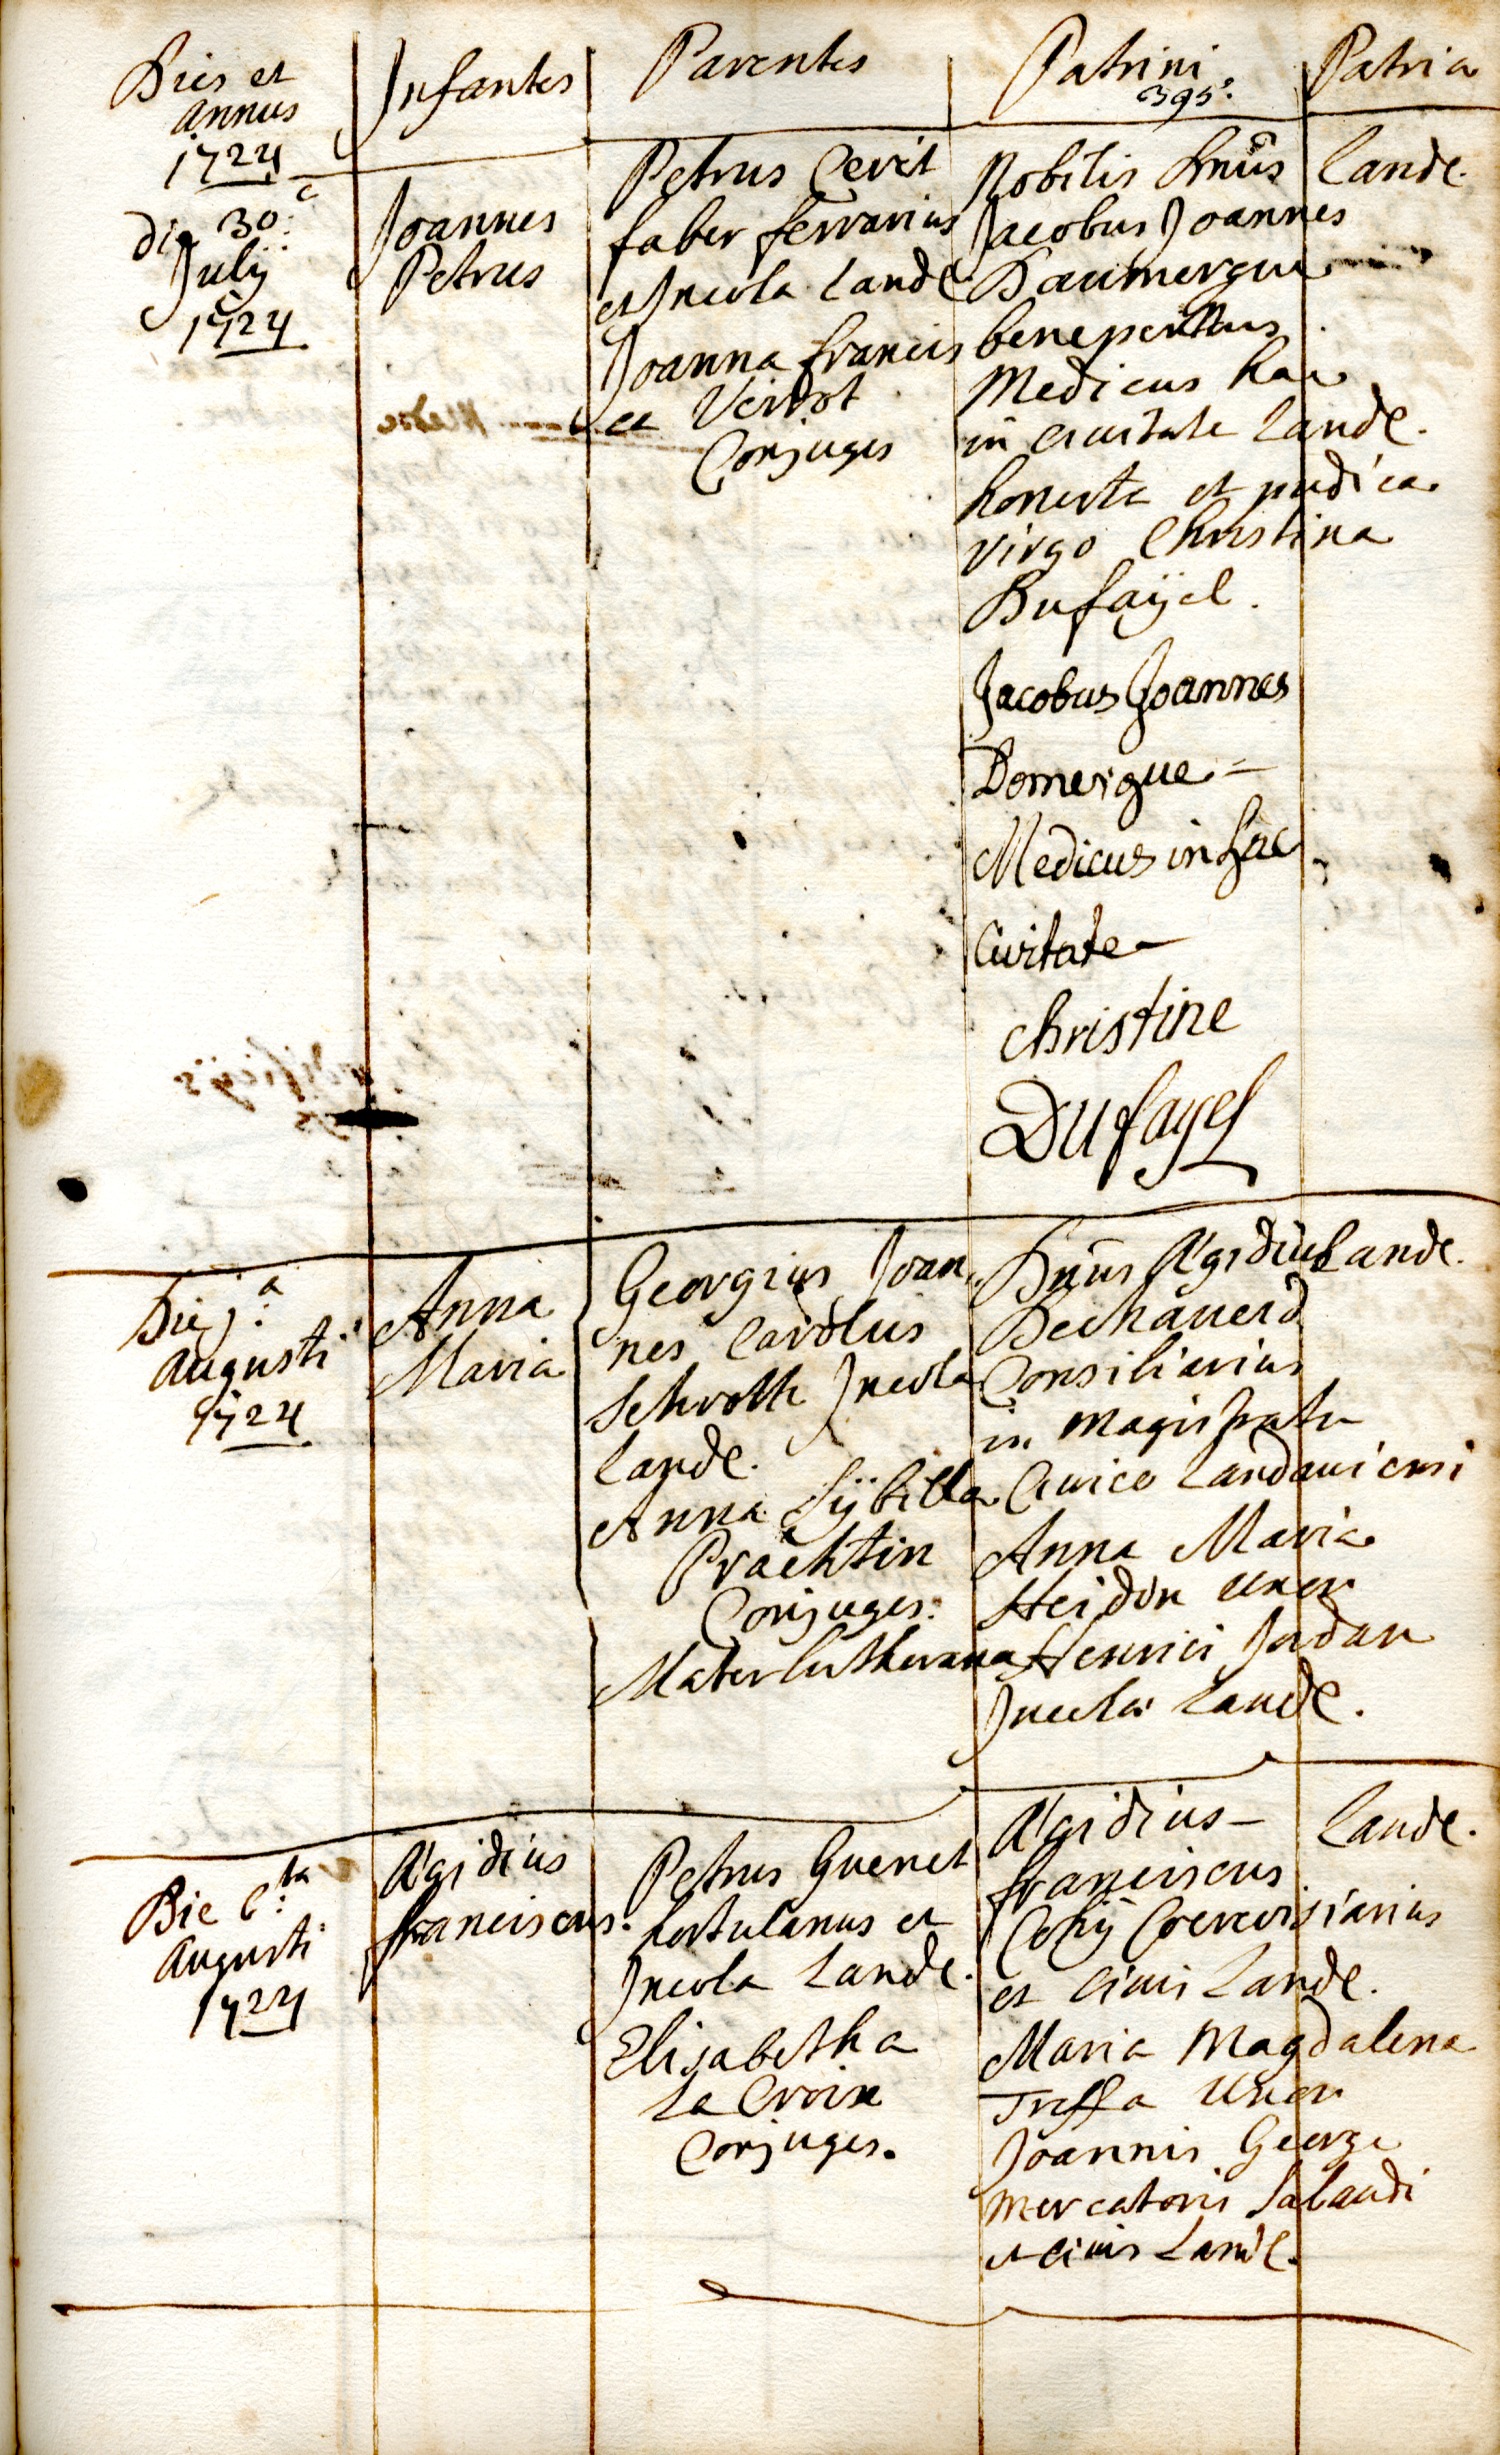 Dies et
annus
1724
Infantes
Parentes
Patrini
395.
Patria
die 30:
Julij
1724
Joannes
Petrus
Petrus Cerit
faber ferrarius
et Incola Lande
Joanna francis
ca Verdot
Conjuges
Nobilis Dnus
Jacobus Joannes
Daumergue
beneperitus
Medicus hac
in civitate Lande.
honesta et pudica
virgo Christina
Dufaijel.
Jacobus Joannes
Domergue
Medicus in hac
Civitate
christine
Dufayel
Lande.
Die 1.a
Augusti
1724
Anna
Maria
Georgius Joan
nes Carolus
Schroth Incola
Lande.
Anna Sijbilla
Prachtin
Conjuges:
Mater lutherana
Dnus Ægidius
Consiliarius
in magistratu
Civico Landaviensi
Anna Maria
Heidin uxor
Henrici Jordan
Incolæ Lande.
Lande.
Die 6.ta
Augusti
1724
Ægidius
franciscus.
Petrus Guenet
hortulanus et
Incola Lande.
Elisabetha
La Croix
Conjuges.
Ægidius
franciscus
Coerevisiarius
et civis Lande.
Maria Magdalena
uxor
Joannis George
mercatoris
et civis Lande.
Lande.